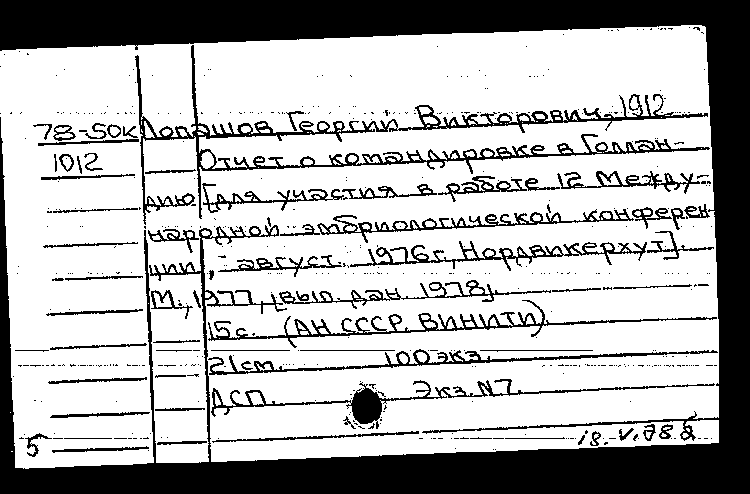 78-50к Лопашов, Георгий Викторович, 1912
1012 Отчет о командировке в Голлан-
дию [для участия в работе 12 Между-
народной эмбриологической конферен
ции, - август. 1976г., Нордвикерхут].
М., 1977, [вып. дан. 1978].
15с. (АН СССР. ВИНИТИ).
21см. 100экз.
ДСП. Экз. №7.
5 18.V.78